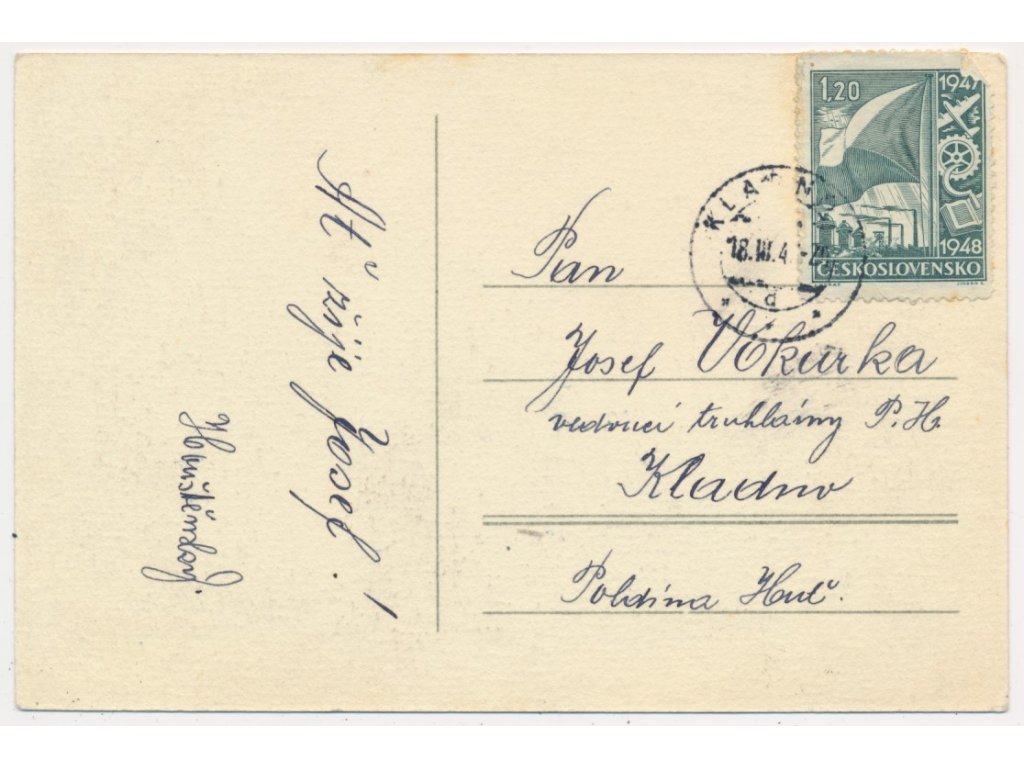 Ať žije Josef!
1,20
1947
1948
ČESKOSLOVENSKO
KLADNO
18.III.4
d
Pan
Josef Vokurka
vedoucí truhlárny P.H.
Kladno
Poldina Huť.